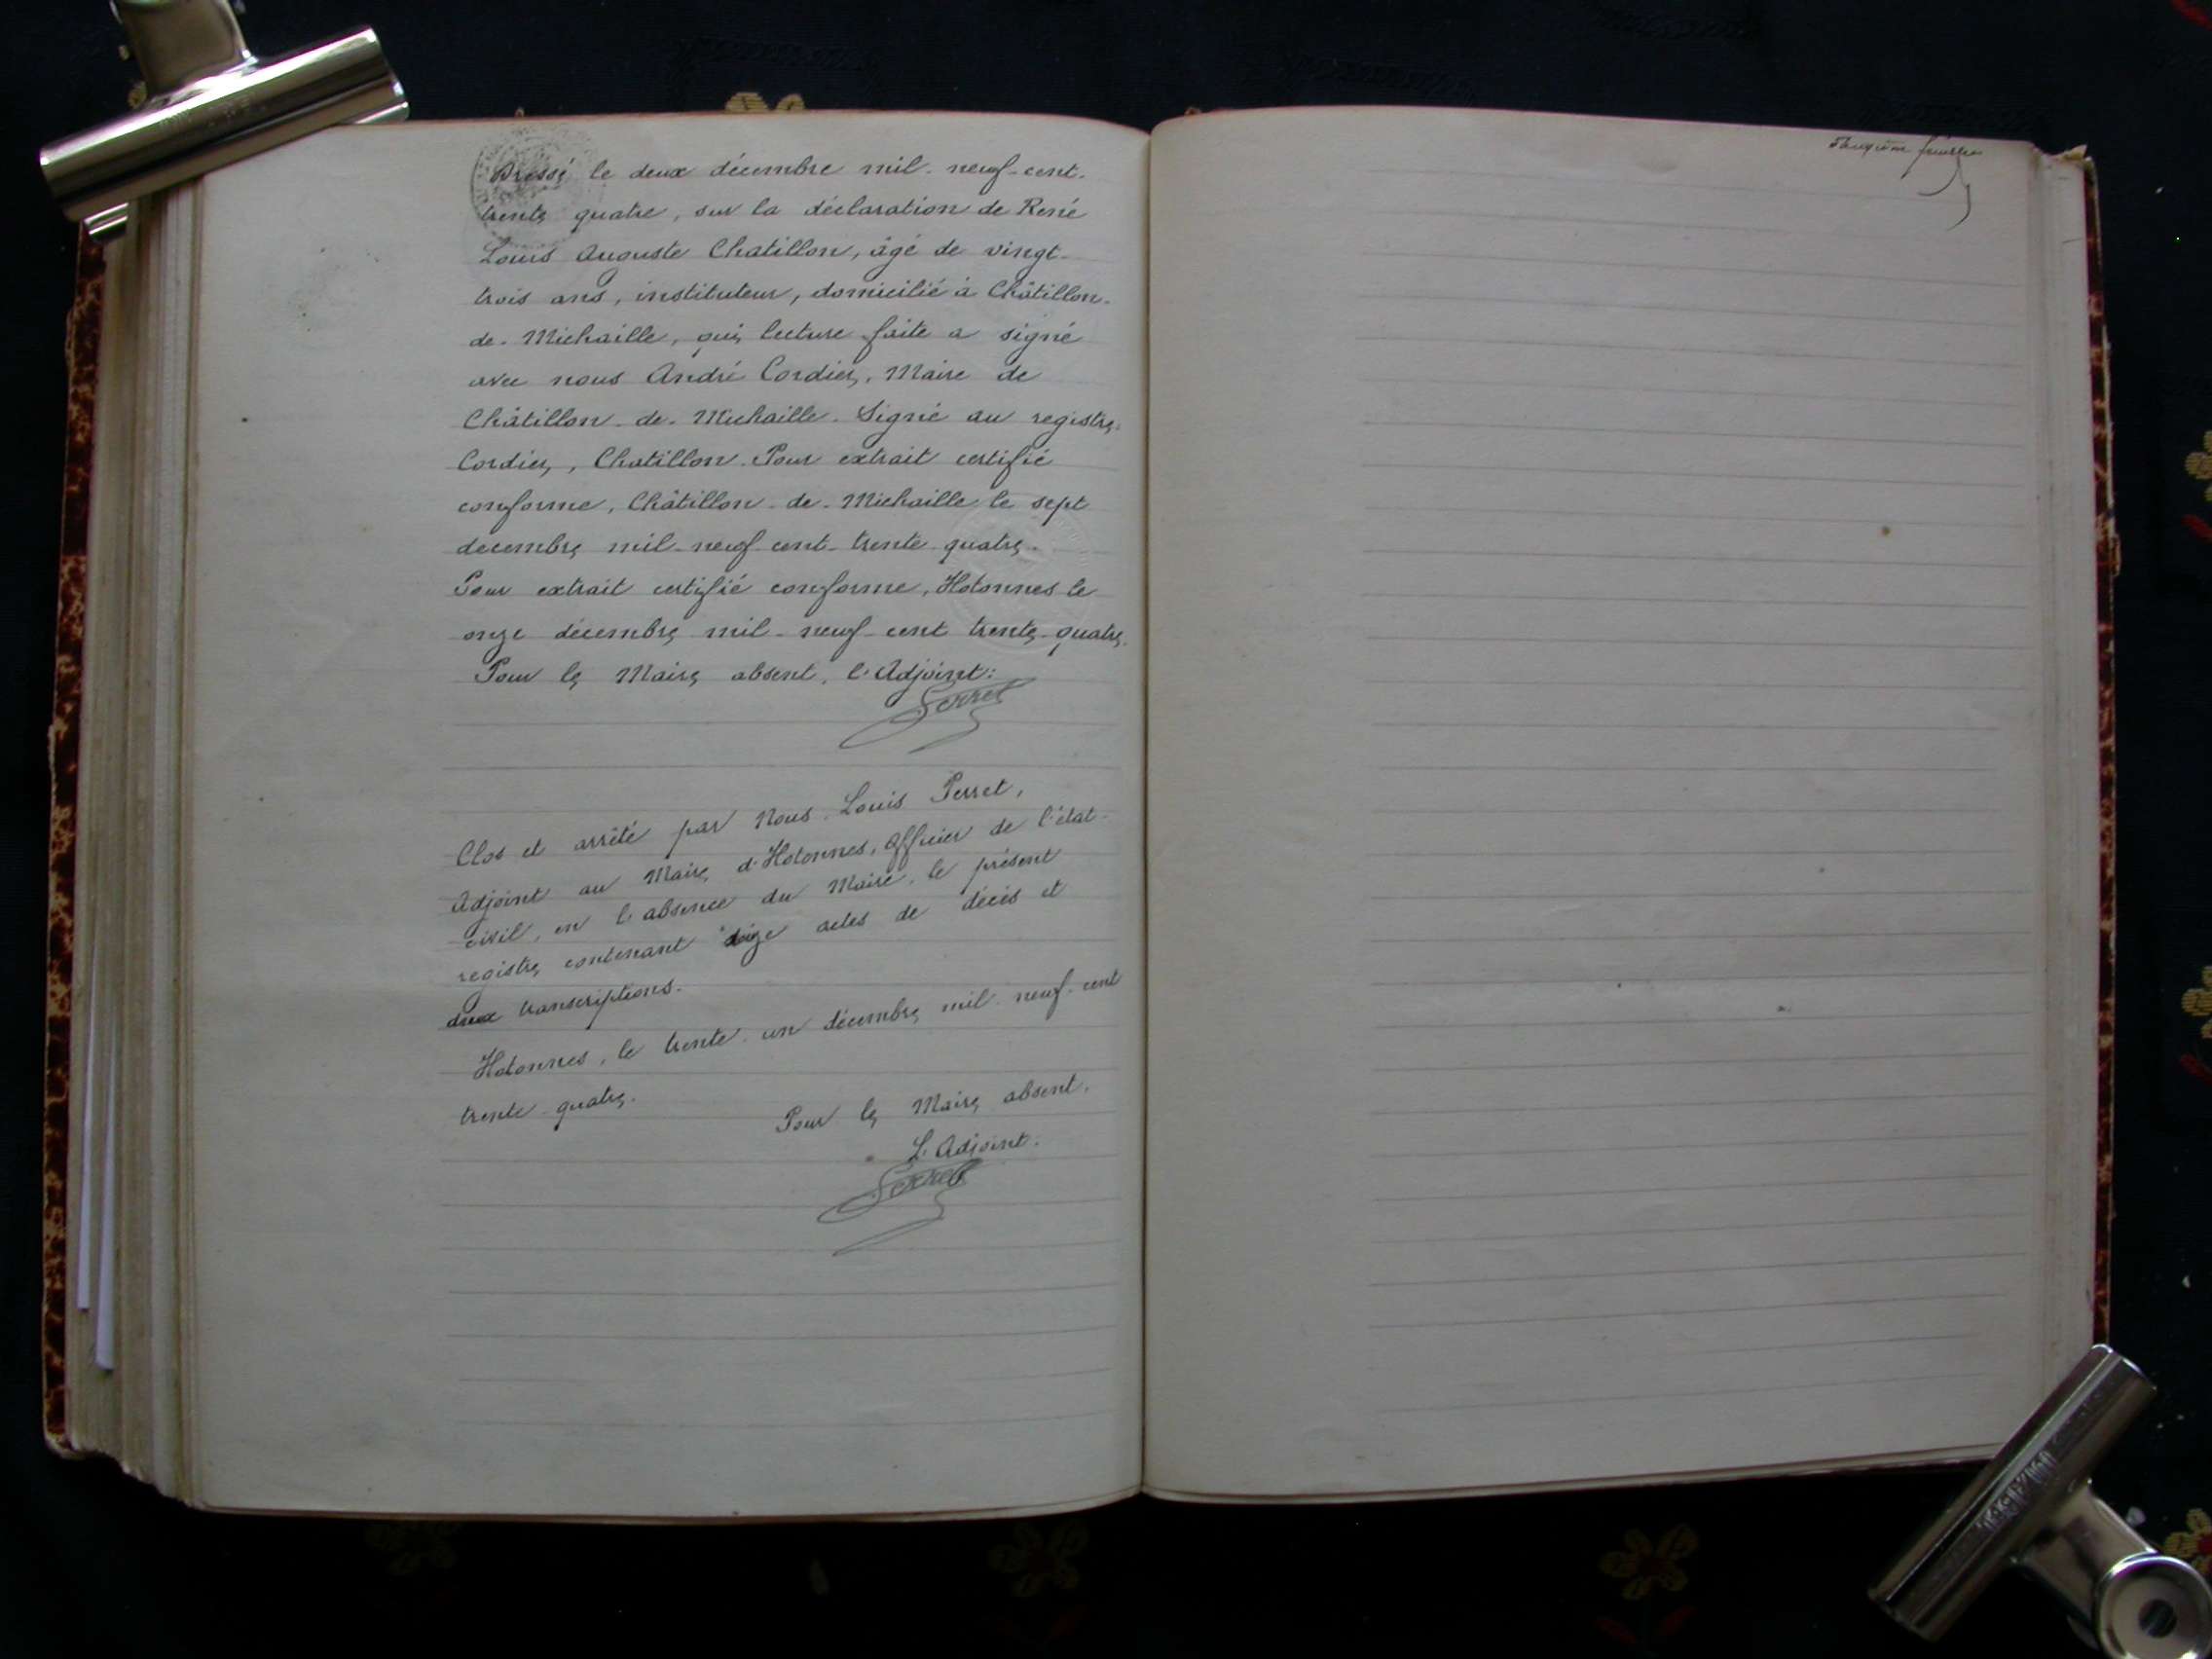 Dressé le deux décembre mil-neuf-cent-
trente quatre, sur la déclaration de René
Louis Auguste Chatillon, âgé de vingt-
trois ans, instituteur, domicilié à Châtillon-
de-Michaille, qui, lecture faite a signé
avec nous André Cordier, Maire de
Châtillon-de-Michaille. Signé au registre:
Cordier, Chatillon. Pour extrait certifié
conforme, Châtillon-de-Michaille le sept
decembre mil-neuf-cent-trente-quatre.
Pour extrait certifié conforme, Hotonnes le
onze décembre mil-neuf-cent trente-quatre.
Pour le Maire absent, l'Adjoint:
Perret
Clos et arrêté par Nous, Louis Perret,
Adjoint au Maire d'Hotonnes, Officier de l'état-
civil, en l'absence du Maire, le présent
registre contenant actes de décès et
deux transcriptions.
Hotonnes, le trente-un décembre mil-neuf-cent
trente-quatre.
Pour le Maire absent,
L'Adjoint.
Perret
feuillet